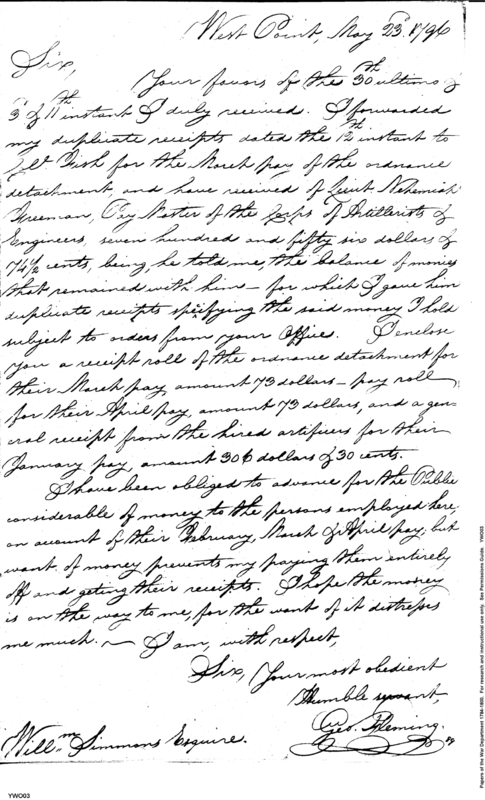 West Point, May 23d. 1796
Sir,
Your favors of the 30th ultimo &
3d & 11th instant I duly received. I forwarded
my duplicate receipts dated the 12th instant to
Fish for the March pay of the ordnance
detachment, and have received of Lieut. Nehemiah
Freeman, Pay Master of the Corps of Artillerists &
Engineers, seven hundred and fifty six dollars &
74 1/2 cents, being, he told me, the balance of monies
that remained with him – for which I gave him
duplicate receipts specifying the said money I hold
subject to orders from your Office. I enclose
you a receipt roll of the ordnance detachment for
their March pay, amount 73 dollars – pay roll
for their April pay, amount 73 dollars, and a gen-
eral receipt from the hired artificers for their
January pay, amount 306 dollars & 30 cents.
I have been obliged to advance for the Public
considerable of money to the persons employed here,
on account of their February, March & April pay, but
want of money prevents my paying them entirely
off and geting their receipts. I hope the money
is on the way to me, for the want of it distresses
me much. – I am, with respect,
Sir, Your most obedient
Humble servant,
Geo. Fleming.
Willm. Simmons Esquire.
YWO03
Papers of the War Department 1784-1800. For research and instructional use only. See Permissions Guide. YWO03